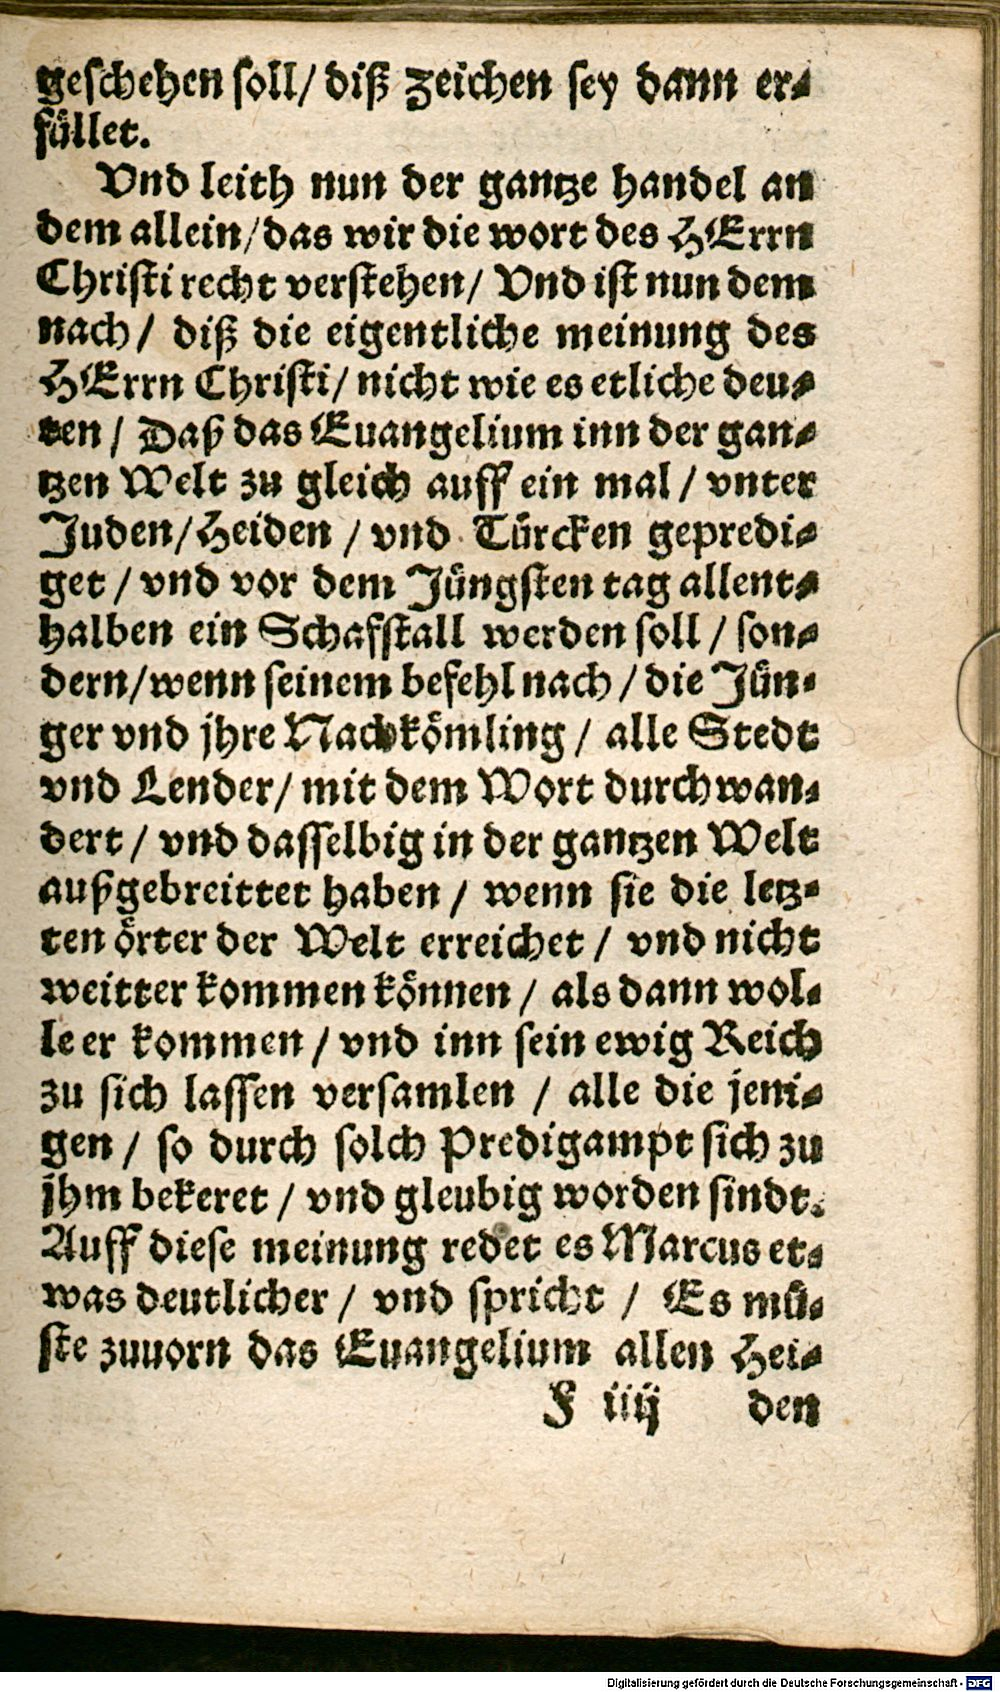 geschehen soll/ diß zeichen sey dann er-
füllet.
Vnd leith nun der gantze handel an
dem allein/das wir die wort des HErrn
Christi recht verstehen/ Vnd ist nun dem
nach/ diß die eigentliche meinung des
HErrn Christi/ nicht wie es etliche deu-
ten / Daß das Euangelium inn der gan-
tzen Welt zu gleich auff ein mal / vnter
Juden/Heiden / vnd Türcken gepredi-
get / vnd vor dem Jüngsten tag allent-
halben ein Schafstall werden soll / son-
dern/wenn seinem befehl nach / die Jün-
ger vnd jhre Nachkömling / alle Stedt
vnd Lender/ mit dem Wort durchwan-
dert / vnd dasselbig in der gantzen Welt
außgebreittet haben / wenn sie die letz-
ten örter der Welt erreichet / vnd nicht
weitter kommen können / als dann wol-
le er kommen / vnd inn sein ewig Reich
zu sich lassen versamlen / alle die jeni-
gen / so durch solch Predigampt sich zu
jhm bekeret / vnd gleubig worden sindt.
Auff diese meinung redet es Marcus et-
was deutlicher / vnd spricht / Es mü-
ste zuuorn das Euangelium allen Hei-
F iiij den
Digitalisierung gefördert durch die Deutsche Forschungsgemeinschaft - DFG